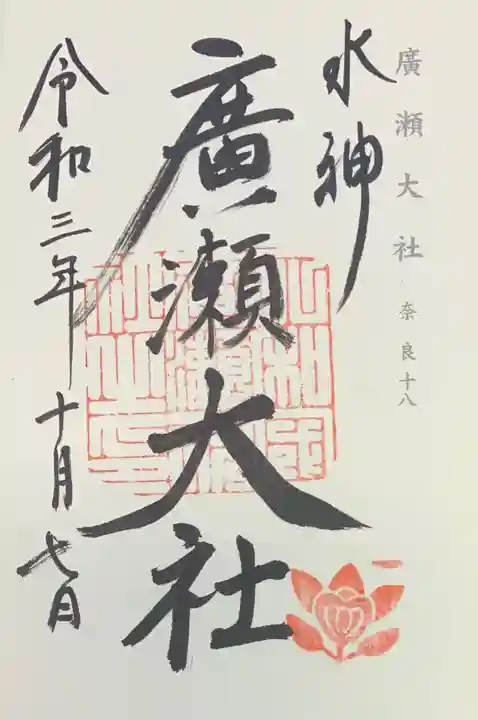 廣瀬大社 奈良十八
水神
廣瀬大社
令和三年十月七日